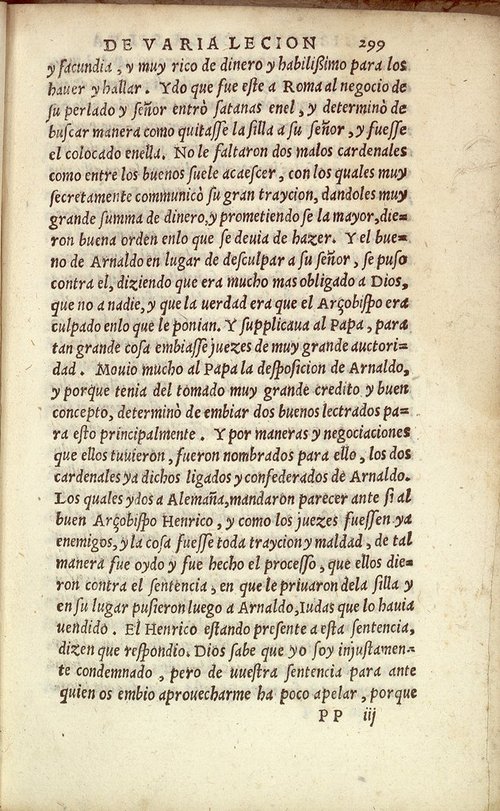 DE VARIA LECION 299
y facundia, y muy rico de dinero y habilißimo para los
hauer y hallar. Ydo que fue este a Roma al negocio de
su perlado y señor entrò satanas enel, y determinò de
buscar manera como quitasse la silla a su señor, y fuesse
el colocado enella. No le faltaron dos malos cardenales
como entre los buenos suele acaescer, con los quales muy
secretamente communicò su gran traycion, dandoles muy
grande summa de dinero,y prometiendose la mayor,die-
ron buena orden enlo que se deuia de hazer. Y el bue-
no de Arnaldo en lugar de desculpar a su señor, se puso
contra el, diziendo que era mucho mas obligado a Dios,
que no a nadie, y que la verdad era que el Arçobispo era
culpado enlo que le ponian. Y supplicaua al Papa, para
tan grande cosa embiasse juezes de muy grande auctori-
dad. Mouio mucho al Papa la desposicion de Arnaldo,
y porque tenia del tomado muy grande credito y buen
concepto, determinò de embiar dos buenos lectrados pa-
ra esto principalmente. Y por maneras y negociaciones
que ellos tuuieron, fueron nombrados para ello, los dos
cardenales ya dichos ligados y confederados de Arnaldo.
Los quales ydos a Alemaña,mandaron parecer ante si al
buen Arçobispo Henrico, y como los juezes fuessen ya
enemigos, y la cosa fuesse toda traycion y maldad, de tal
manera fue oydo y fue hecho el processo, que ellos die-
ron contra el sentencia, en que le priuaron dela silla y
en su lugar pusieron luego a Arnaldo,Iudas que lo hauia
uendido. El Henrico estando presente a esta sentencia,
dizen que respondio. Dios sabe que yo soy injustamen-
te condemnado, pero de uuestra sentencia para ante
quien os embio aprouecharme ha poco apelar, porque
PP iij